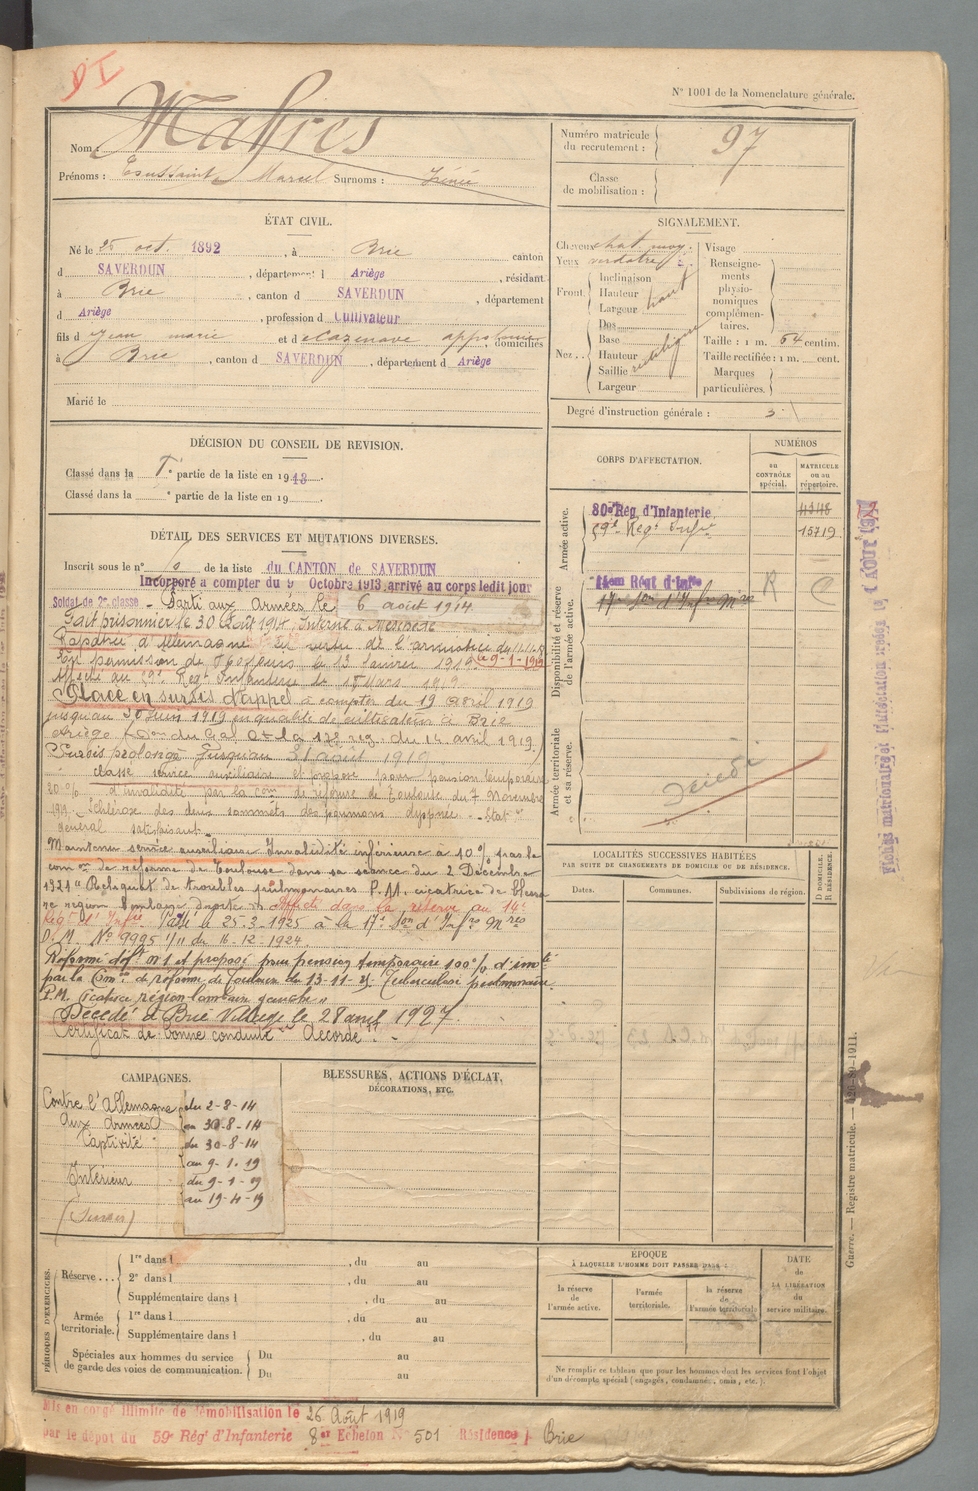 N° 1001 de la Nomenclature générale.
Nom : Maffres
Prénoms : Toussaint Marcel Surnoms : Irénée
Numéro matricule du recrutement : 97
Classe de mobilisation :
ÉTAT CIVIL.
Né le 25 oct. 1892, à Brie canton
d SAVERDUN, département d Ariège, résidant
à Brie, canton d SAVERDUN, département
d Ariège, profession d Cultivateur
fils d Jean marie et d Cazenave appolonie, domiciliés
à Brie, canton d SAVERDUN, département d Ariège
Marié le
SIGNALEMENT.
Cheveux chat moy.
Yeux verdatre
Front Inclinaison
Hauteur
Largeur haut
Nez Dos
Base
Hauteur
Saillie rectiligne
Largeur
Visage
Renseignements physionomiques complémentaires.
Taille : 1 m. 64 centim.
Taille rectifiée : 1 m. cent.
Marques particulières.
Degré d'instruction générale : 3
DÉCISION DU CONSEIL DE REVISION.
Classé dans la 1e partie de la liste en 1913.
Classé dans la e partie de la liste en 19
DÉTAIL DES SERVICES ET MUTATIONS DIVERSES.
Inscrit sous le n° 6 de la liste du CANTON de SAVERDUN
Incorporé à compter du 9 Octobre 1913 arrivé au corps ledit jour
Soldat de 2e classe - Parti aux Armées le 6 août 1914
Fait prisonnier le 30 Août 1914, Interné à Merseburg
Rapatrié d'Allemagne en vertu de l'armistice du 11.11.18 le 9-1-1919
En permission de 30 jours le 13 Janvier 1919
Affecté au 59e Régt Infanterie le 18 Mars 1919
Placé en sursis d'appel à compter du 19 avril 1919
jusqu'au 30 Juin 1919 en qualité de cultivateur à Brie
Ariège (Don du Gal Ct la 17e rég. du 14 avril 1919.)
Sursis prolongé jusqu'au 31 août 1919
classé service auxiliaire et proposé pour pension temporaire
20 % d'invalidité par la com. de réforme de Toulouse du 7 Novembre
1919. Sclérose des deux sommets des poumons dyspnée - Etat
Général satisfaisant
Maintenu service auxiliaire Invalidité inférieure à 10 % par la
com on de réforme de Toulouse dans sa séance du 2 Décembre
1921 "Reliquat de troubles pulmonaires P.M. cicatrice de blessu
re région lombaire droite" Affecté dans la réserve au 14e
Régt d'Infie. Passé le 25-3-1925 à la 17e Son d'Infrs Mres
D. M. N° 9995 1/11 du 16-12-1924
Réformé déft n° 1 et proposé pour pension temporaire 100 % d'invté
par la Comon de réforme de Toulouse du 13-11-25 Tuberculose pulmonaire
P.M. Cicatrice région lombaire gauche"
Décédé à Brie Village le 28 avril 1927
Certificat de bonne conduite "Accordé".
CORPS D'AFFECTATION.
NUMÉROS
au CONTRÔLE spécial.
MATRICULE ou au répertoire.
Armée active.
80e Rég. d'Infanterie
59e Régt Infie 15719
Disponibilité et réserve de l'armée active.
14em Régt d'Infie
17e Son d'Infrs Mres R C
Armée territoriale et sa réserve.
Décédé
LOCALITÉS SUCCESSIVES HABITÉES
PAR SUITE DE CHANGEMENTS DE DOMICILE OU DE RÉSIDENCE.
Dates.
Communes.
Subdivisions de région.
D DOMICILE. R RÉSIDENCE.
CAMPAGNES.
Contre l'Allemagne du 2-8-14
Aux Armées au 30-8-14
Captivité du 30-8-14
au 9-1-19
Intérieur du 9-1-19
au 19-4-19
(Sursis)
BLESSURES, ACTIONS D'ÉCLAT,
DÉCORATIONS, ETC.
PÉRIODES D'EXERCICES.
Réserve... 1re dans l, du au
2e dans l, du au
Supplémentaire dans l, du au
Armée territoriale. 1re dans l, du au
Supplémentaire dans l, du au
Spéciales aux hommes du service de garde des voies de communication. Du au
Du au
ÉPOQUE
À LAQUELLE L'HOMME DOIT PASSER DANS :
la réserve de l'armée active.
l'armée territoriale.
la réserve de l'armée territoriale
DATE de LA LIBÉRATION du service militaire.
Ne remplir ce tableau que pour les hommes dont les services font l'objet
d'un décompte spécial (engagés, condamnés, omis, etc.).
Guerre. — Registre matricule. —
Mis en congé illimité de démobilisation le 26 Août 1919
par le dépôt du 59e Rég' d'Infanterie 8er Echelon N° 501 Résidence : Brie